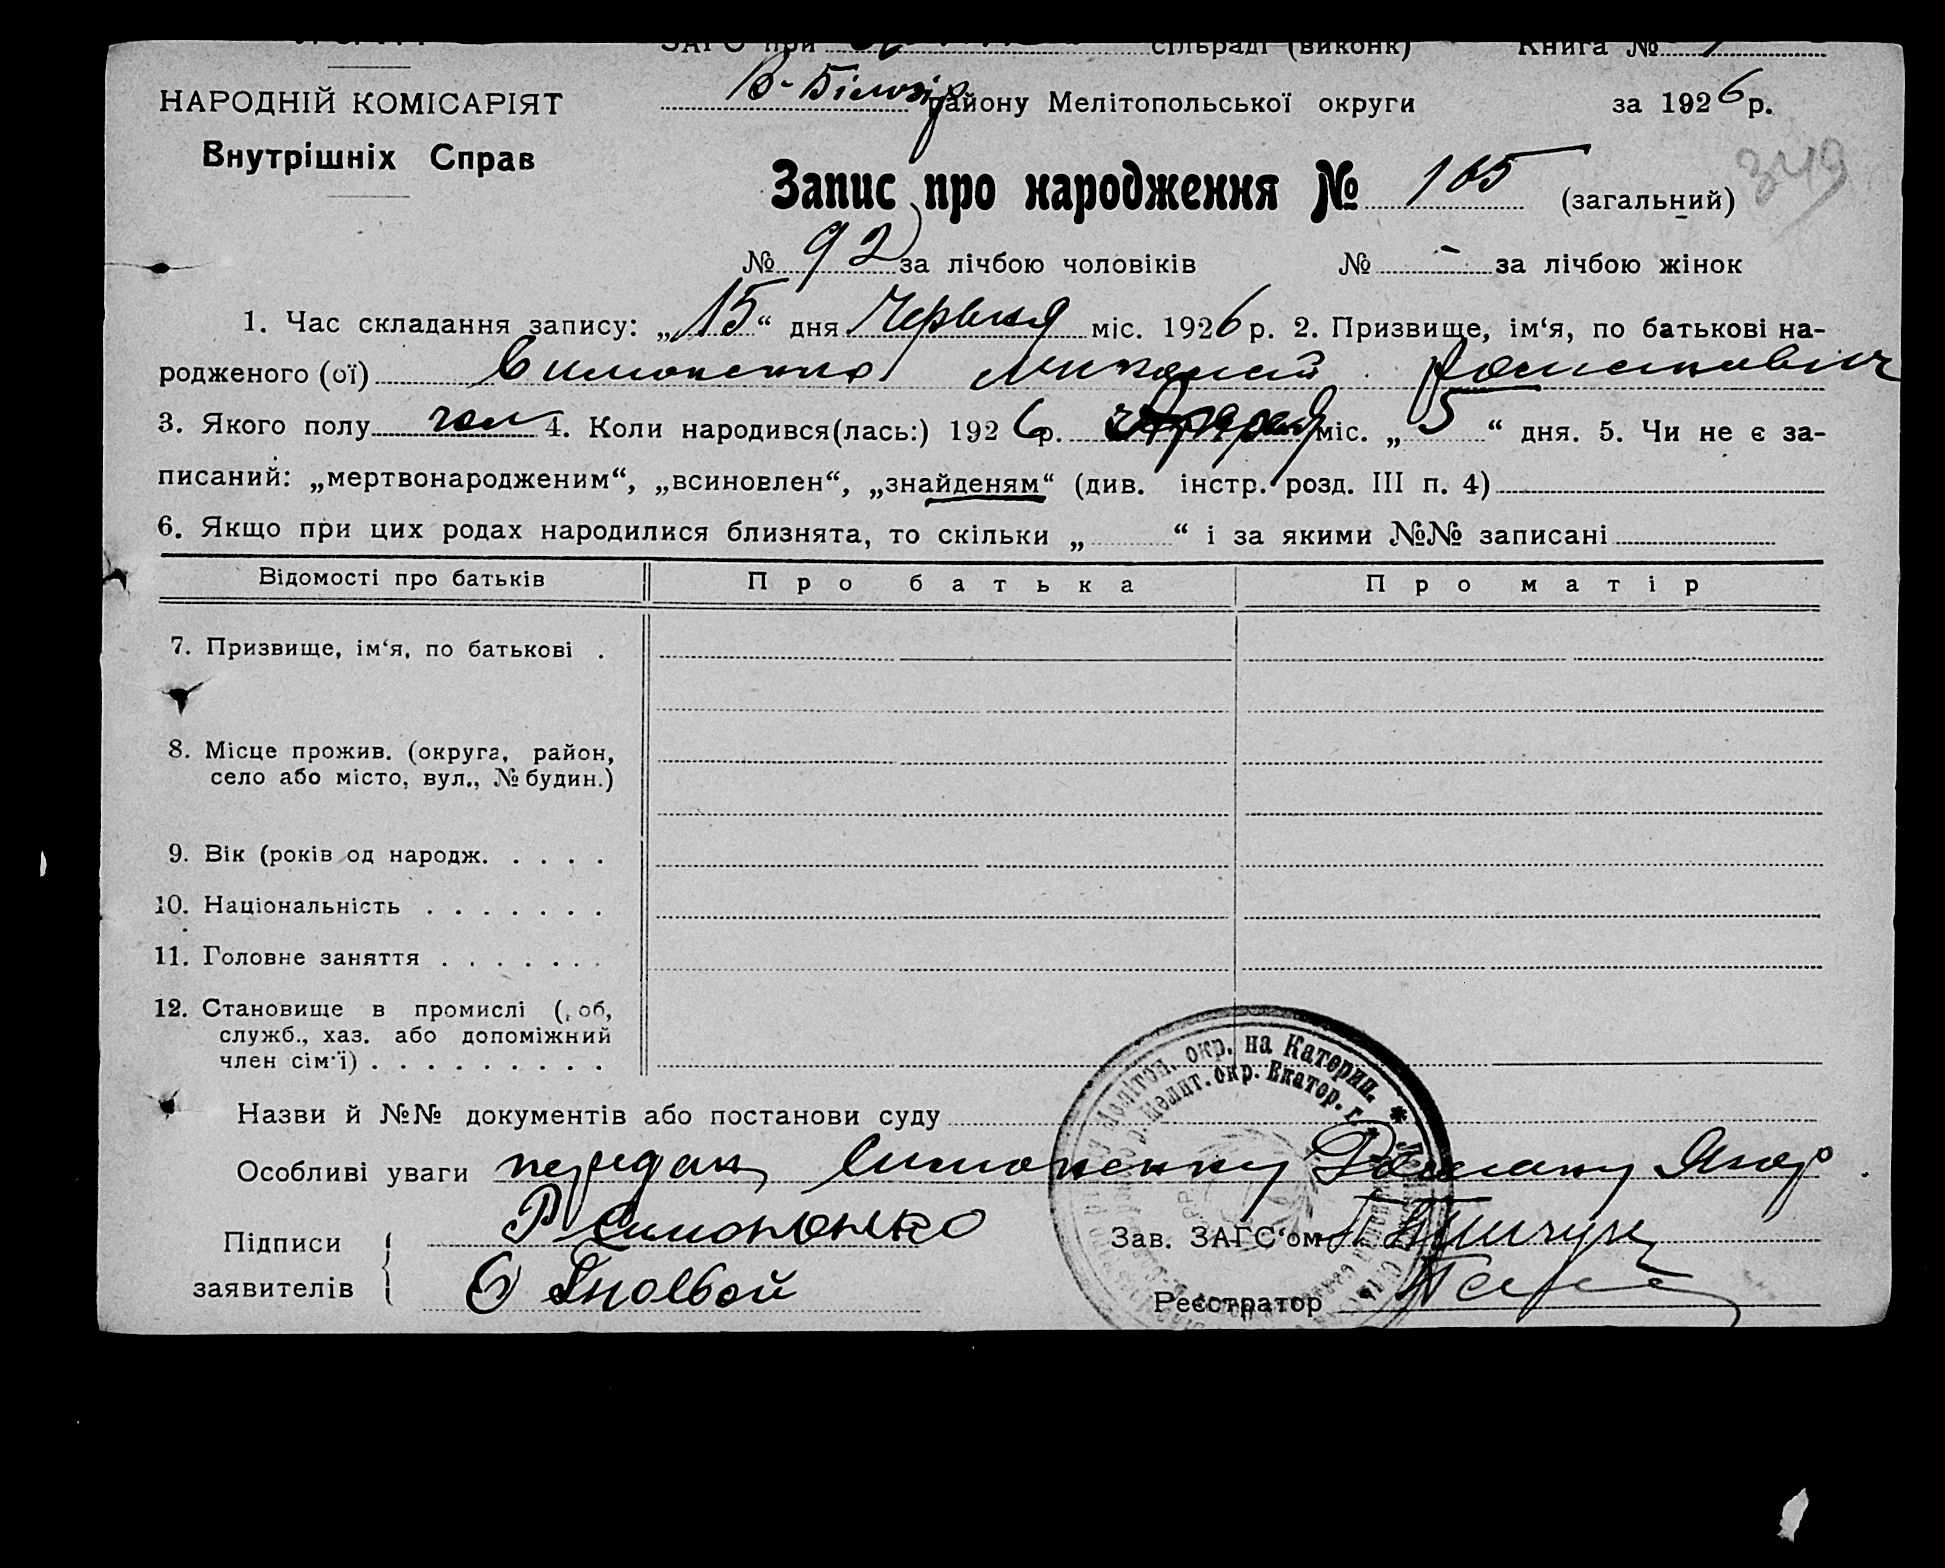 ЗАГС при сільраді (виконк) Книга №
НАРОДНІЙ КОМІСАРІЯТ
В-Білозір району Мелітопольської округи за 1926 р.
Внутрішніх Справ
Запис про народження № 165 (загальний) 349
№ 92 за лічбою чоловіків № - за лічбою жінок
1. Час складання запису: „15“ дня Червня міс. 1926 р. 2. Призвище, ім‘я, по батькові на-
родженого (ої) Симоненко Миколай Романович
3. Якого полу чол 4. Коли народився(лась:) 1926 р. міс. „5“ дня. 5. Чи не є за-
писаний: „мертвонародженим“, „всиновлен“, „знайденям“ (див. інстр. розд. III п. 4)
6. Якщо при цих родах народилися близнята, то скільки „ “ і за якими №№ записані
Відомості про батьків Про батька Про матір
7. Призвище, ім‘я, по батькові .
8. Місце прожив. (округа, район,
село або місто, вул., № будин.)
9. Вік (років од народж. . . . .
10. Національність . . . . . . .
11. Головне заняття . . . . . . .
12. Становище в промислі ( об,
служб., хаз. або допоміжний
член сім‘ї) . . . . . . . . .
Назви й №№ документів або постанови суду
Особливі уваги Симоненку Роману
Підписи заявителів
Р Симоненко
Зав. ЗАГС‘ом
Реєстратор
окр. на Катерин. *
Мелит. окр. Екатор. г. *